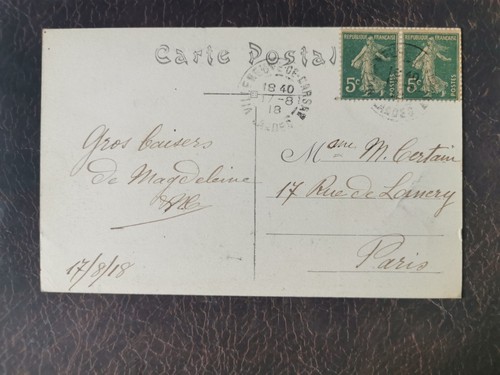 Carte Postale
REPUBLIQUE FRANÇAISE
5c POSTES
REPUBLIQUE FRANÇAISE
5c POSTES
VILLENEUVE-DE-MARSAN
18 40
17-8
18
LANDES
Gros baisers
de Magdeleine
17/8/18
Mme M. Certain
17 Rue de Lancry
Paris